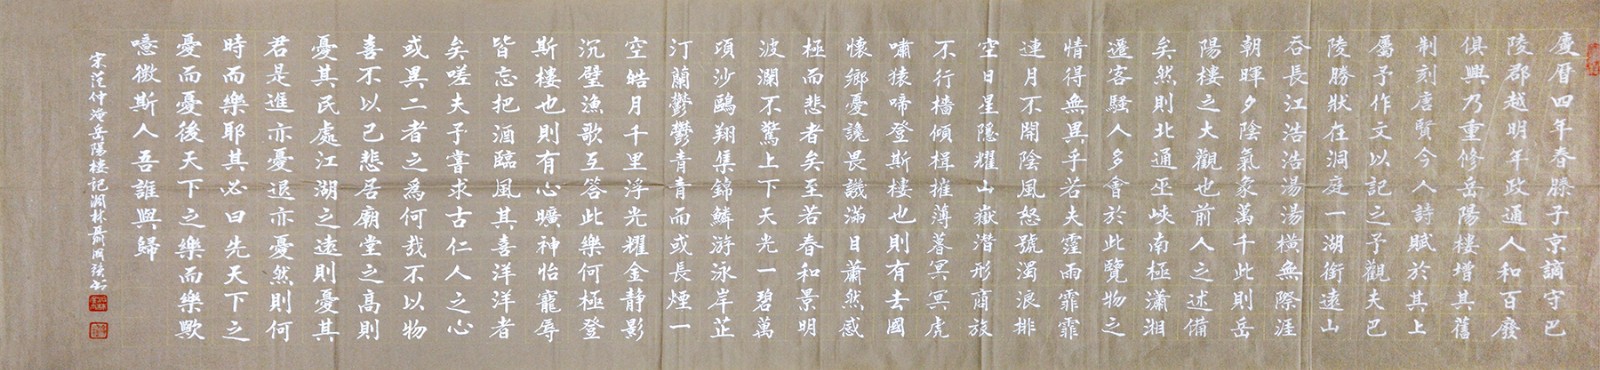 慶曆四年春滕子京謫守巴
陵郡越明年政通人和百廢
俱興乃重修岳陽樓增其舊
制刻唐賢今人詩賦於其上
屬予作文以記之予觀夫巴
陵勝狀在洞庭一湖銜遠山
吞長江浩浩湯湯橫無際涯
朝暉夕陰氣象萬千此則岳
陽樓之大觀也前人之述備
矣然則北通巫峽南極瀟湘
遷客騷人多會於此覽物之
情得無異乎若夫霪雨霏霏
連月不開陰風怒號濁浪排
空日星隱耀山嶽潛形商旅
不行檣傾楫摧薄暮冥冥虎
嘯猿啼登斯樓也則有去國
懷鄉憂讒畏譏滿目蕭然感
極而悲者矣至若春和景明
波瀾不驚上下天光一碧萬
頃沙鷗翔集錦鱗游泳岸芷
汀蘭鬱鬱青青而或長煙一
空皓月千里浮光耀金靜影
沉璧漁歌互答此樂何極登
斯樓也則有心曠神怡寵辱
皆忘把酒臨風其喜洋洋者
矣嗟夫予嘗求古仁人之心
或異二者之為何哉不以物
喜不以己悲居廟堂之高則
憂其民處江湖之遠則憂其
君是進亦憂退亦憂然則何
時而樂耶其必曰先天下之
憂而憂後天下之樂而樂歟
噫微斯人吾誰與歸
宋范仲淹岳陽樓記